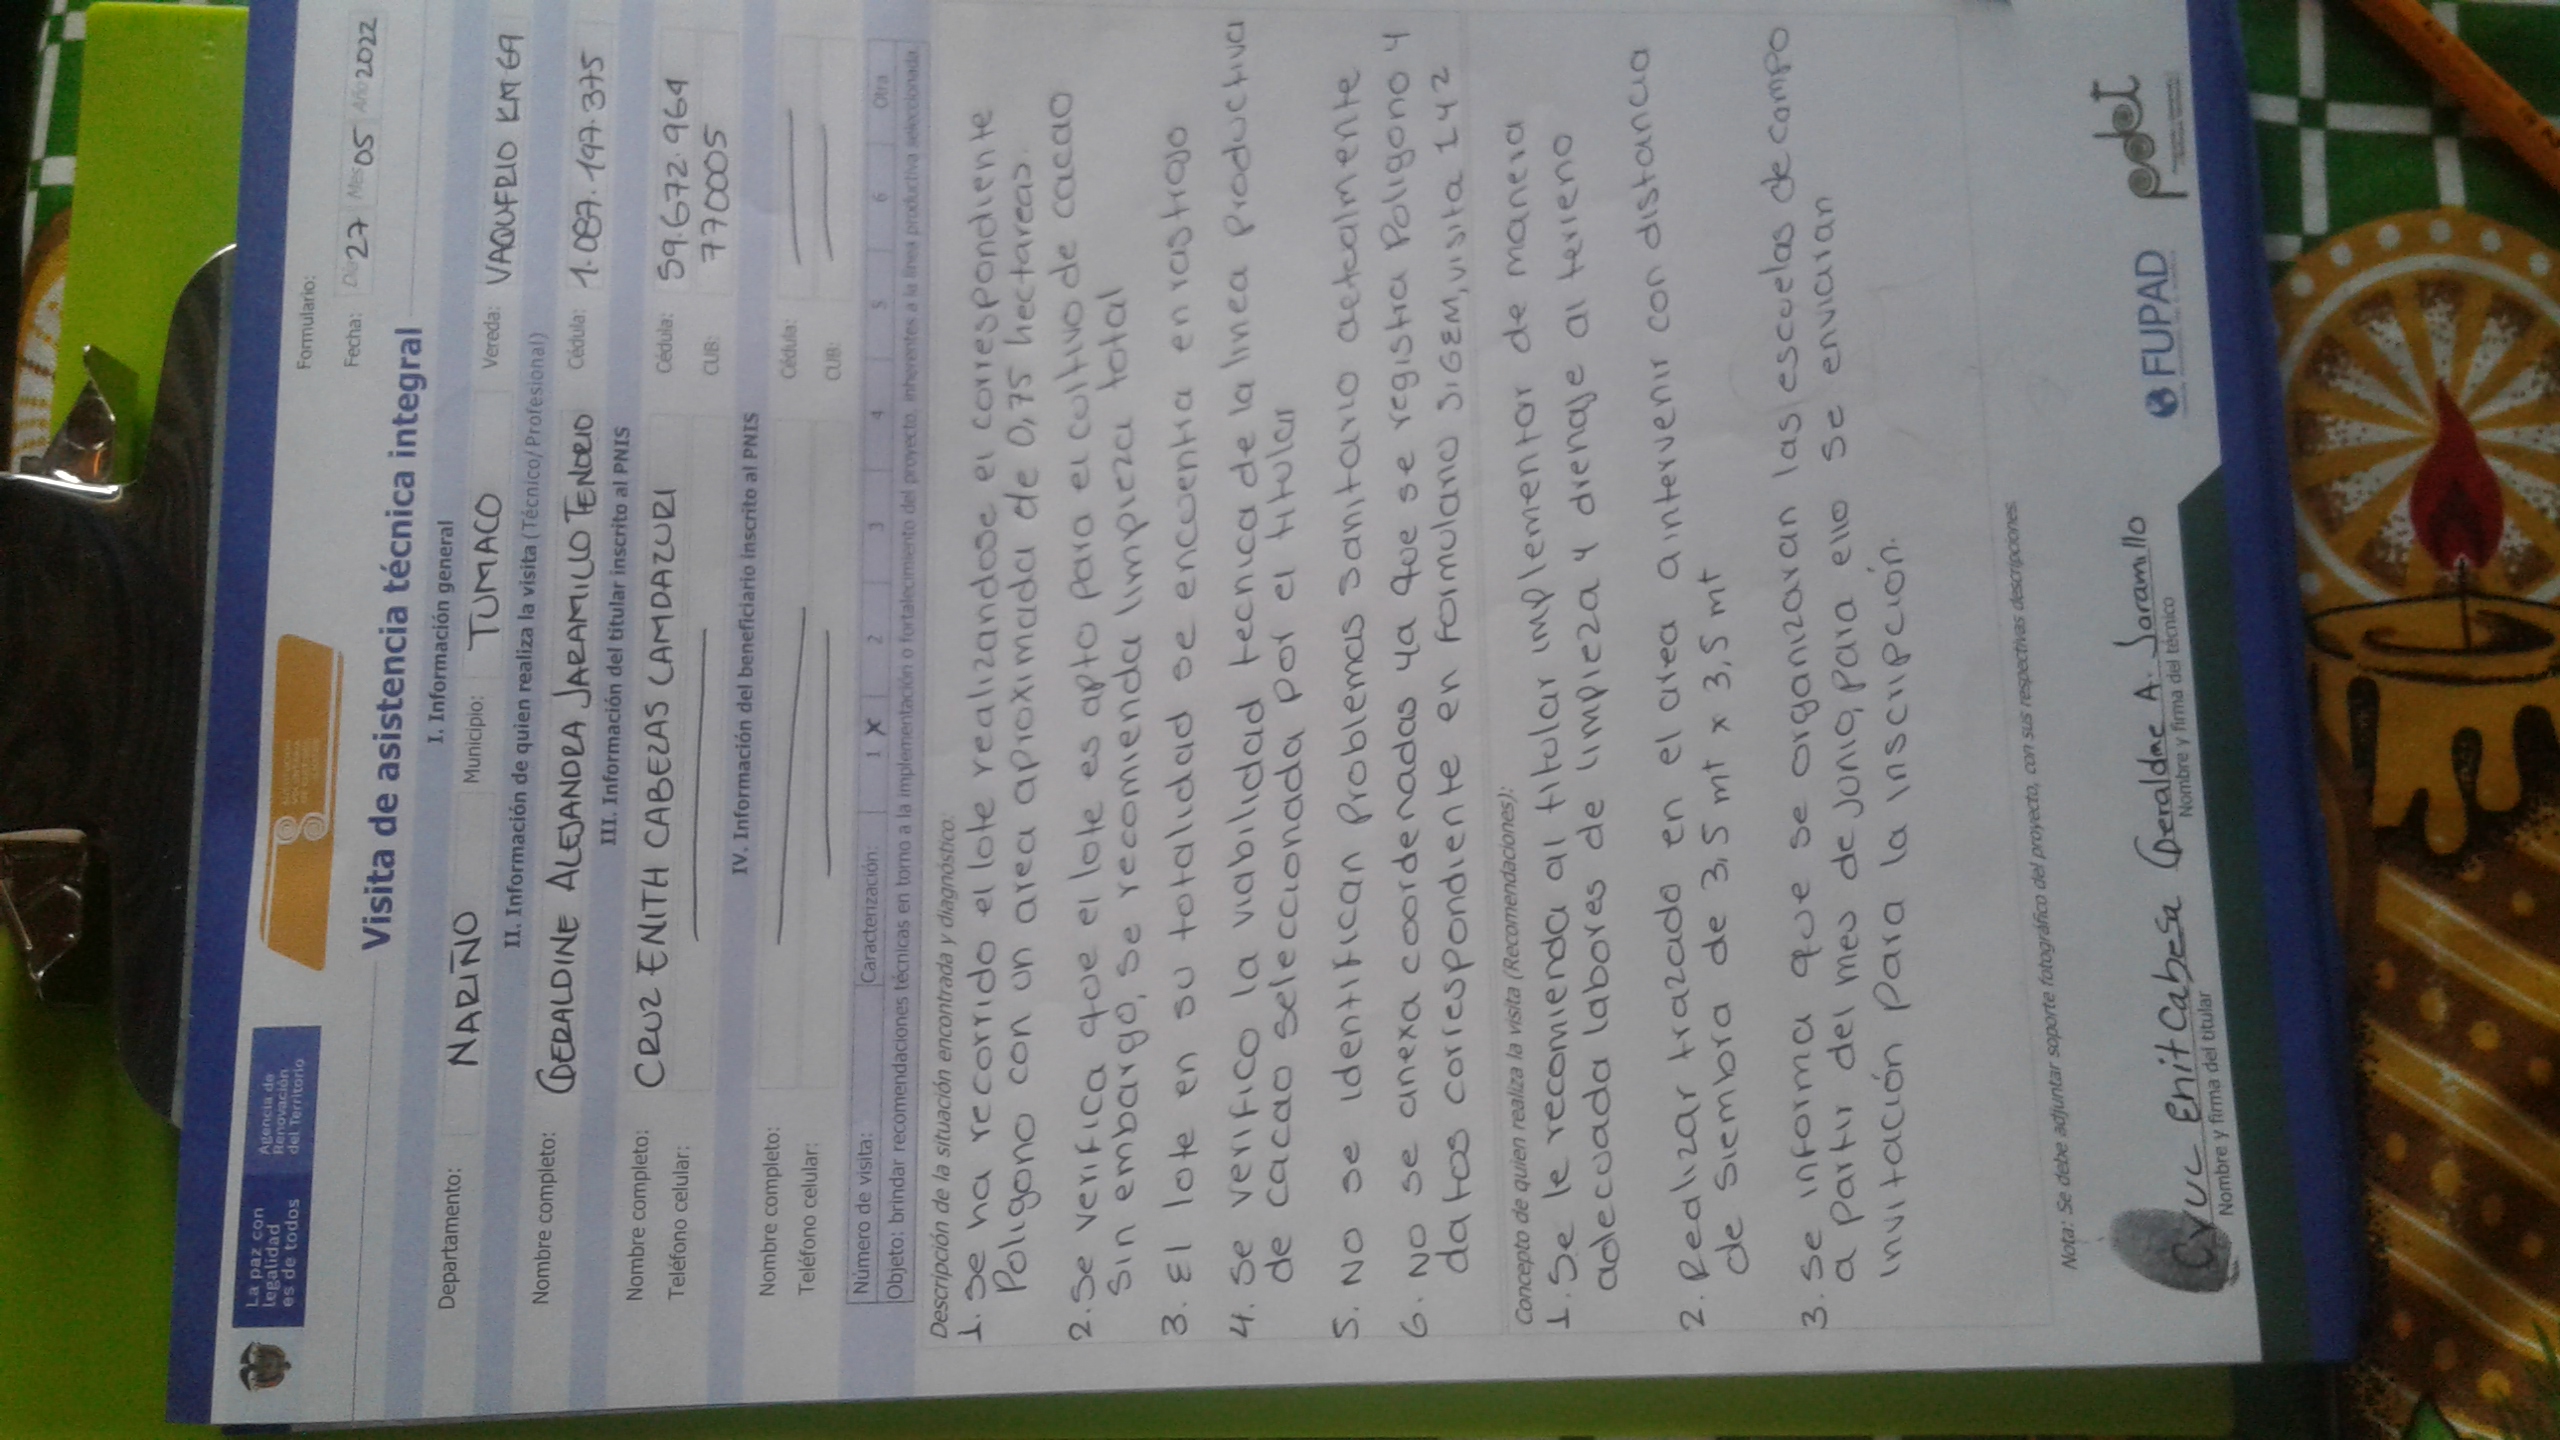 La paz con
legalidad
es de todos
Agencia de
Renovación
del Territorio
Formulario:
Fecha: Día 27 Mes 05 Año 2022
Visita de asistencia técnica integral
I. Información general
Departamento: NARIÑO Municipio: TUMACO Vereda: VAQUERIO KM 69
II. Información de quien realiza la visita (Técnico/ Profesional)
Nombre completo: GERALDINE ALEJANDRA JARAMILLO TENORIO Cédula: 1.087.197.375
III. Información del titular inscrito al PNIS
Nombre completo: CRUZ ENITH CABEZAS CAMDAZURI Cédula: 59.672.964
Teléfono celular: CUB: 770005
IV. Información del beneficiario inscrito al PNIS
Nombre completo: Cédula:
Teléfono celular: CUB:
Número de visita: Caracterización: 1 X 2 3 4 5 6 Otra
Objeto: brindar recomendaciones técnicas en torno a la implementación o fortalecimiento del proyecto, inherentes a la línea productiva seleccionada.
Descripción de la situación encontrada y diagnóstico:
1. Se ha recorrido el lote realizandose el correspondiente
Poligono con un area aproximada de 0,75 hectareas.
2. Se verifica que el lote es apto para el cultivo de cacao
sin embargo, se recomienda limpieza total
3. El lote en su totalidad se encuentra en rastrojo
4. Se verifico la viabilidad tecnica de la linea productiva
de cacao seleccionada por el titular
5. No se identifican problemas sanitario actualmente
6. No se anexa coordenadas ya que se registra Poligono y
datos correspondiente en formulario SIGEM, visita 1 y 2
Concepto de quien realiza la visita (Recomendaciones):
1. Se le recomienda al titular implementar de manera
adecuada labores de limpieza y drenaje al terreno
2. Realizar trazado en el area a intervenir con distancia
de siembra de 3,5 mt x 3,5 mt
3. Se informa que se organizaran las escuelas de campo
a partir del mes de junio, para ello se enviaran
invitación para la inscripción.
Nota: Se debe adjuntar soporte fotográfico del proyecto, con sus respectivas descripciones
Cruc Enit Cabesa
Nombre y firma del titular
Geraldine A. Jaramillo
Nombre y firma del técnico
FUPAD
pdet